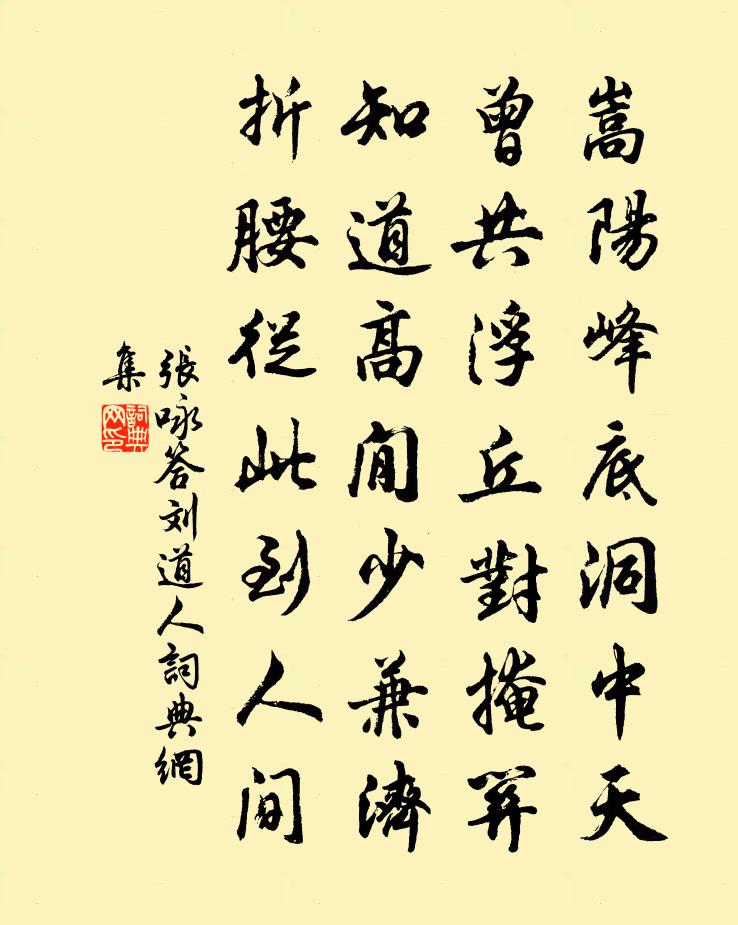 嵩陽峰底洞中天
曾共浮丘對掩關
知道高閒少兼濟
折腰從此到人間
張咏答刘道人詞典網
集
詞典
网印